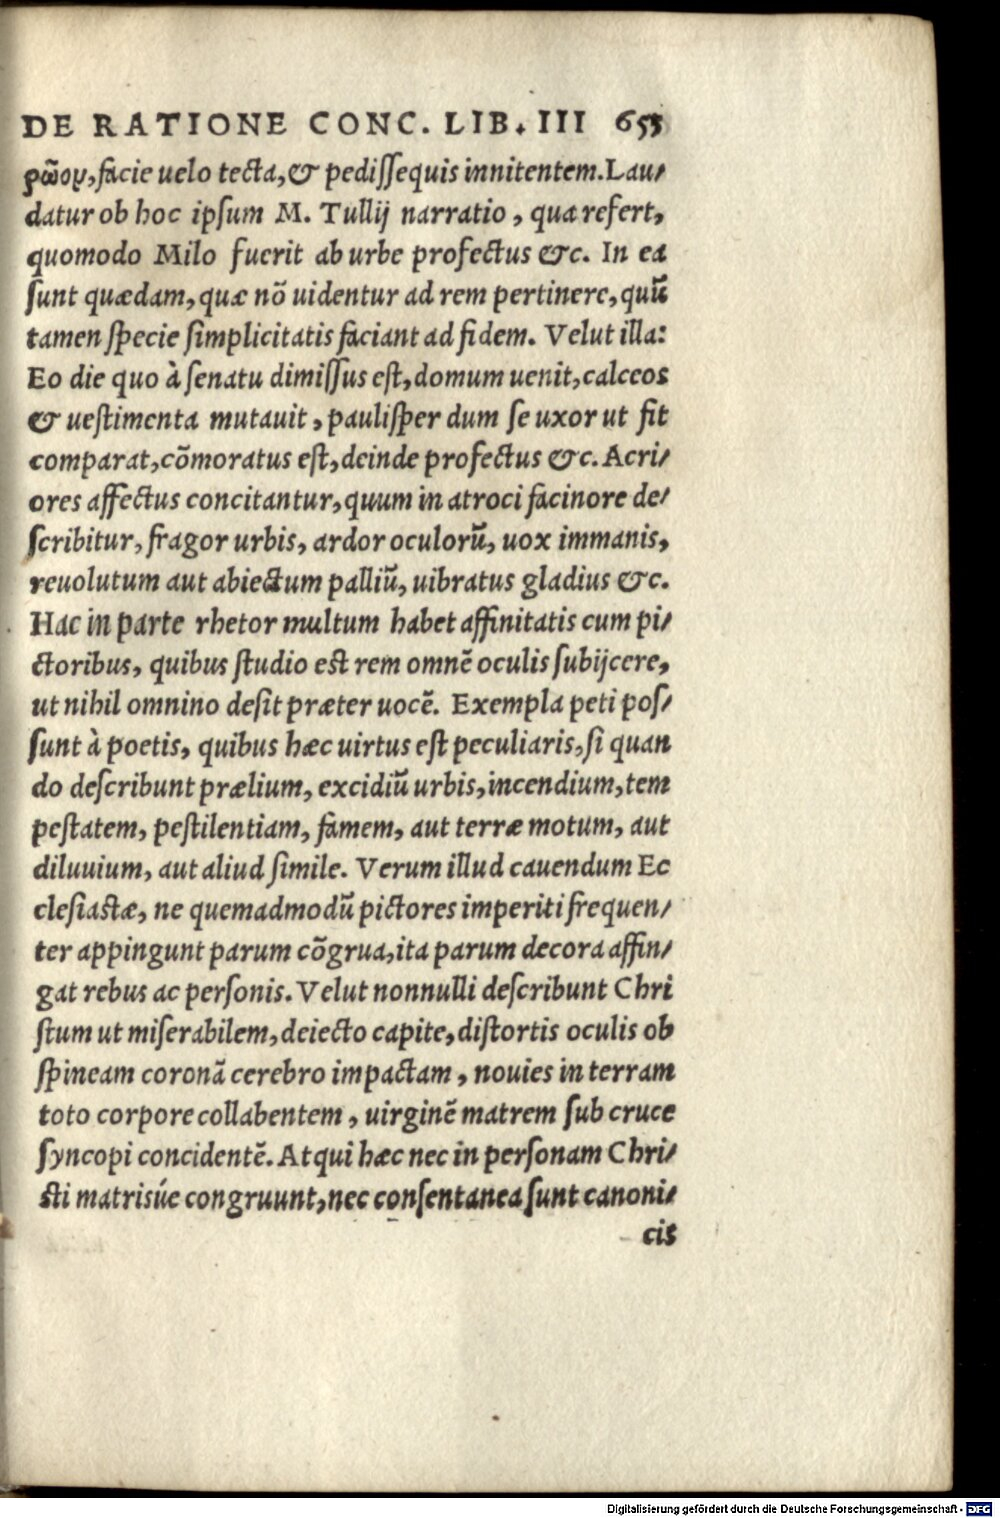 DE RATIONE CONC. LIB. III 655
ρῶου, facie uelo tecta, & pedissequis innitentem. Lau/
datur ob hoc ipsum M. Tullij narratio, qua refert,
quomodo Milo fuerit ab urbe profectus &c. In ea
sunt quædam, quæ nõ uidentur ad rem pertinere, quũ
tamen specie simplicitatis faciant ad fidem. Velut illa:
Eo die quo à senatu dimissus est, domum uenit, calceos
& uestimenta mutauit, paulisper dum se uxor ut fit
comparat, cõmoratus est, deinde profectus &c. Acri/
ores affectus concitantur, quum in atroci facinore de/
scribitur, fragor urbis, ardor oculorũ, uox immanis,
reuolutum aut abiectum palliũ, uibratus gladius &c.
Hac in parte rhetor multum habet affinitatis cum pi/
ctoribus, quibus studio est rem omnẽ oculis subijcere,
ut nihil omnino desit præter uocẽ. Exempla peti pos/
sunt à poetis, quibus hæc uirtus est peculiaris, si quan
do describunt prælium, excidiũ urbis, incendium, tem
pestatem, pestilentiam, famem, aut terræ motum, aut
diluuium, aut aliud simile. Verum illud cauendum Ec
clesiastæ, ne quemadmodũ pictores imperiti frequen/
ter appingunt parum cõgrua, ita parum decora affin/
gat rebus ac personis. Velut nonnulli describunt Chri
stum ut miserabilem, deiecto capite, distortis oculis ob
spineam coronã cerebro impactam, nouies in terram
toto corpore collabentem, uirginẽ matrem sub cruce
syncopi concidentẽ. Atqui hæc nec in personam Chri/
sti matrisúe congruunt, nec consentanea sunt canoni/
cis
Digitalisierung gefördert durch die Deutsche Forschungsgemeinschaft - DFG